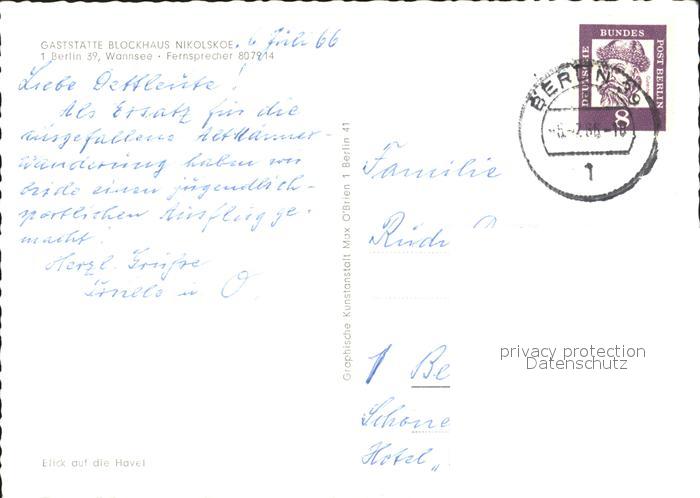 GASTSTÄTTE BLOCKHAUS NIKOLSKOE
1 Berlin 39, Wannsee • Fernsprecher 807914
6. Juli 66
Liebe Dettleute!
Als Ersatz für die
ausgefallene Altmänner-
wanderung haben wir
beide einen jugendlich-
sportlichen Ausflug ge-
macht!
Herzl. Grüße
u. O.
Blick auf die Havel
Graphische Kunstanstalt Max O'Brien 1 Berlin 41
DEUTSCHE BUNDES POST BERLIN
8
BERLIN 39
1
Familie
1 Be
Schöne
Hotel „
privacy protection
Datenschutz